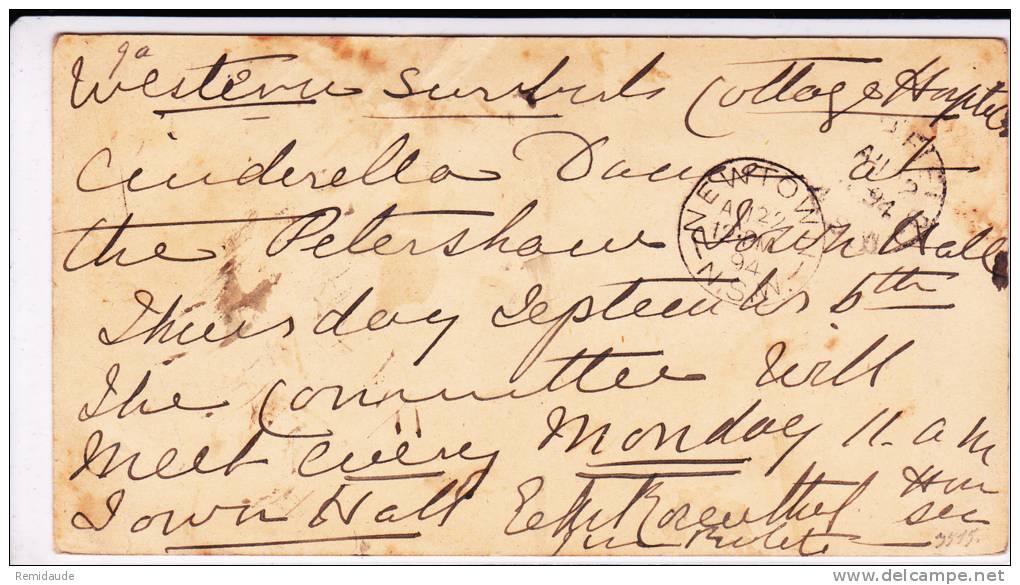 Western Suburbs Cottage Hospital
Cinderella Dance at
the Petersham Town Hall
Thursday September 6th
The Committee Will
Meet every Monday 11. a m
Town Hall Rosenthal Hon
sec
NEWTOWN
AU 22
94
N.S.W.
AU 2
94
3515.
Remidaude
delcampe.net